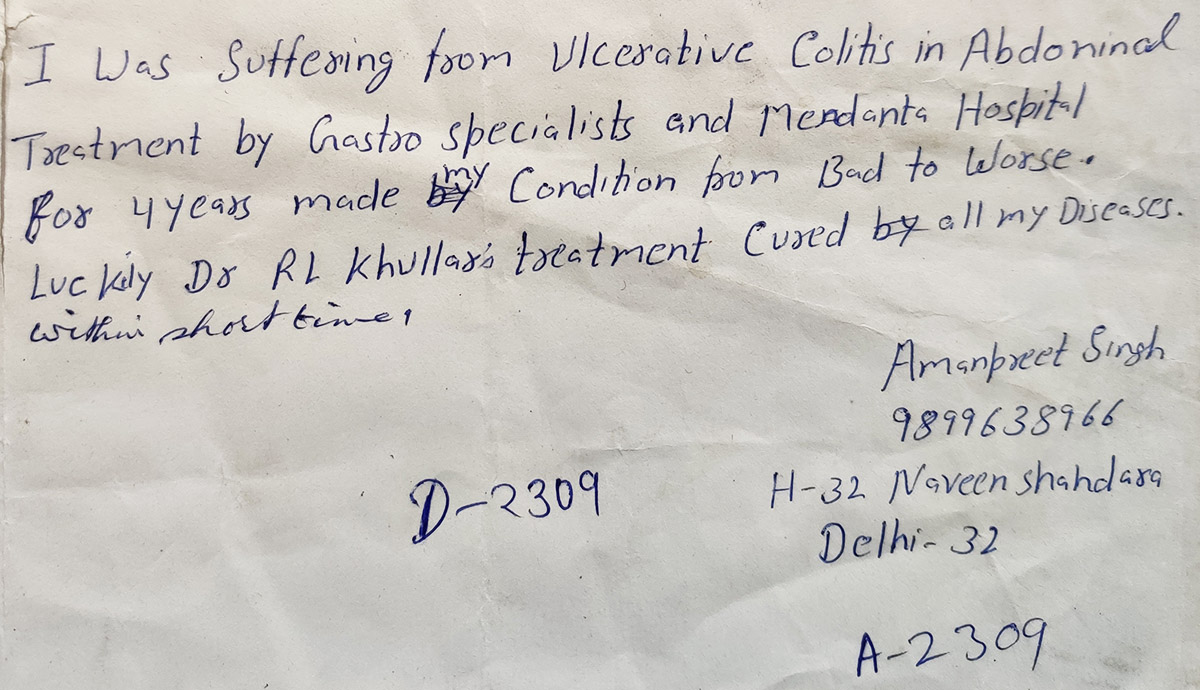 I Was Suffering from Ulcerative Colitis in Abdoninal
Treatment by Gastro specialists and Mendanta Hospital
For 4 years made my Condition from Bad to Worse.
Luckily Dr RL Khullar's treatment Cured all my Diseases.
within short time,
Amanpreet Singh
9899638966
D-2309
H-32 Naveen shahdara
Delhi-32
A-2309